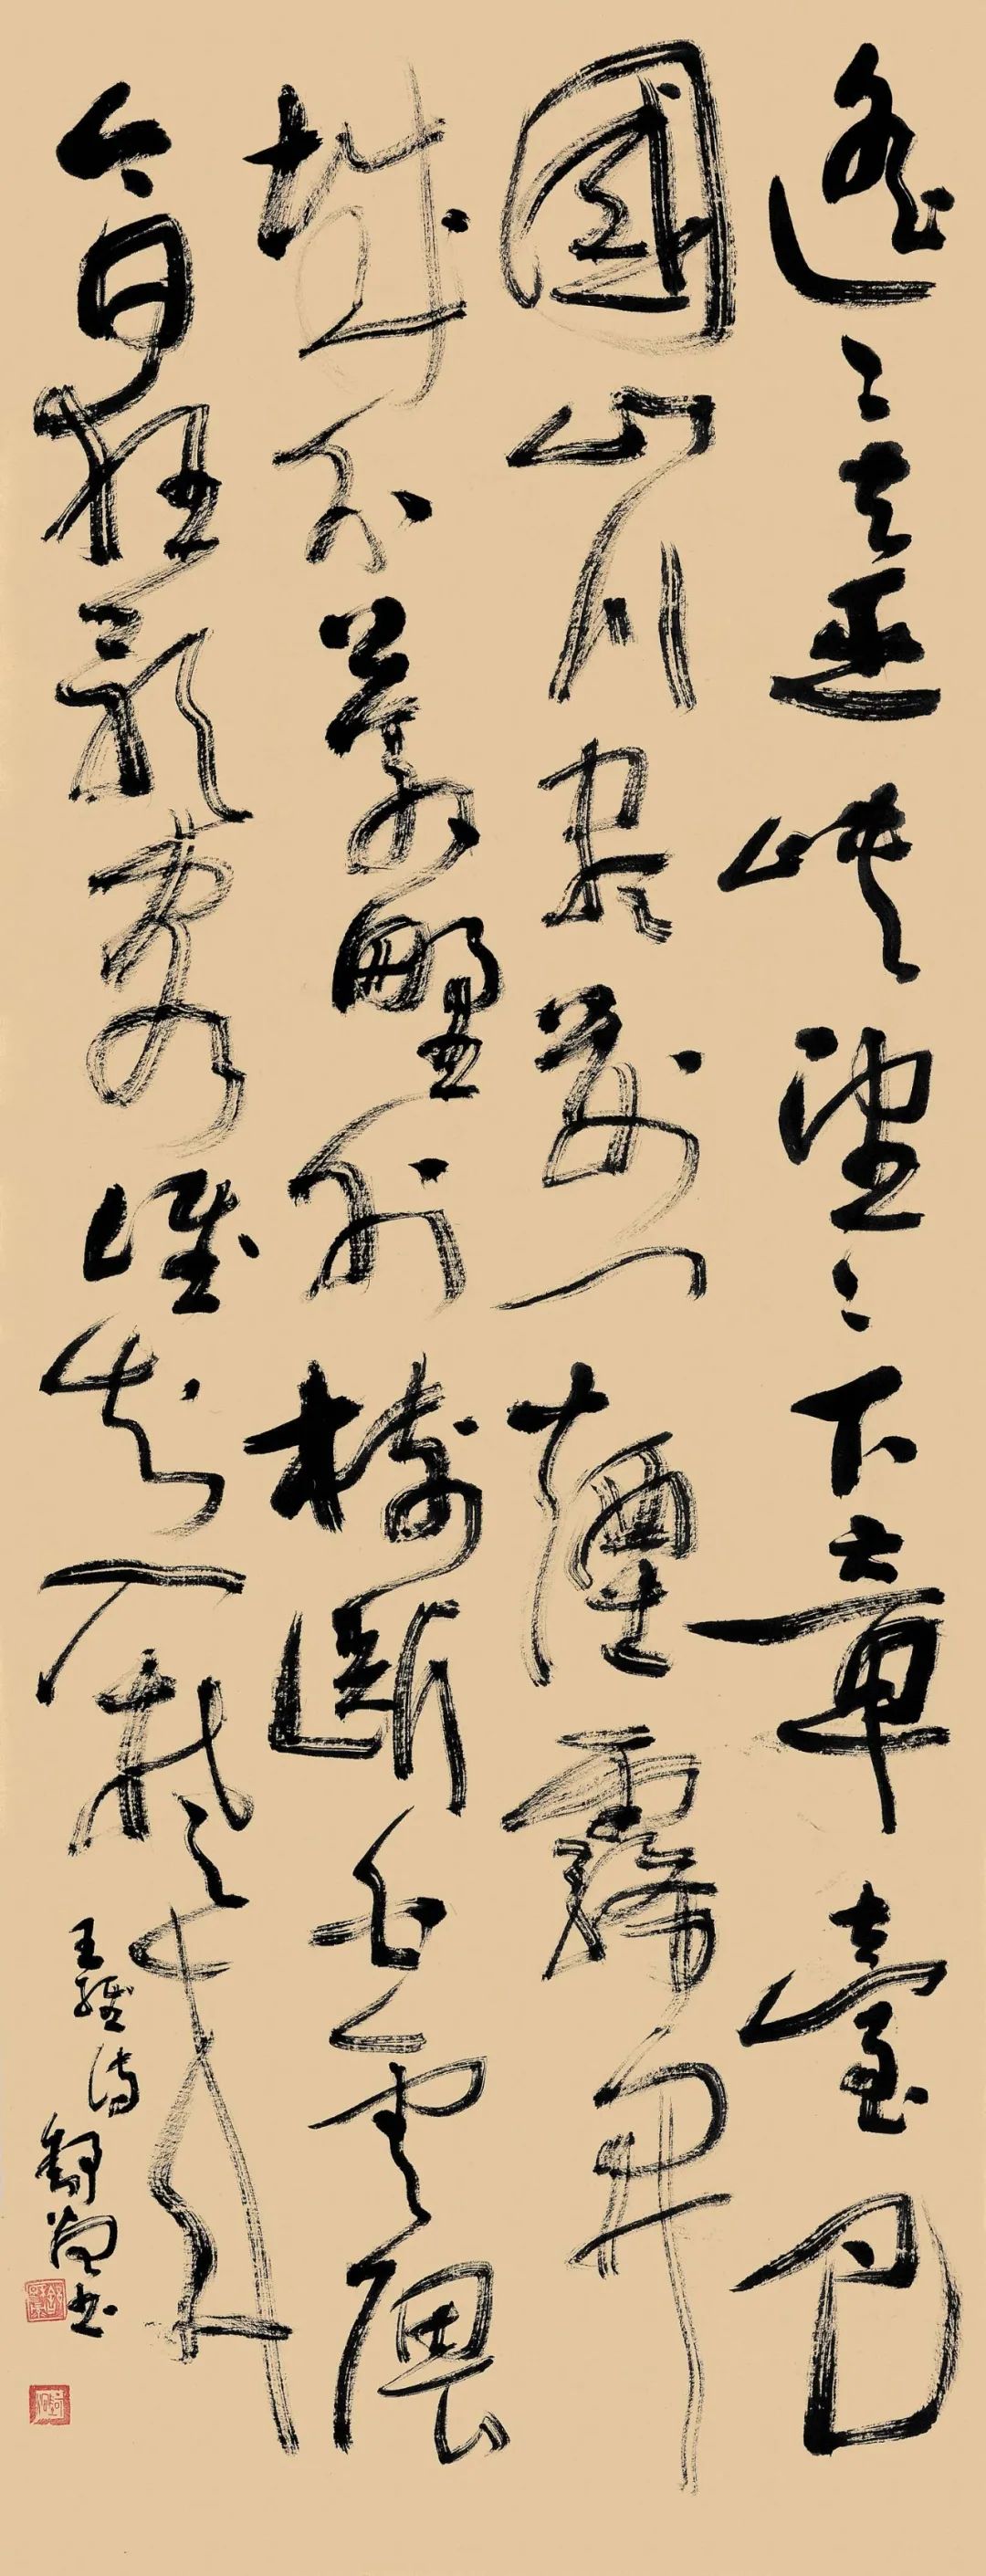 遙々去巫峽望々下章臺巴
國山川盡荊門煙霧開
城分蒼野外樹斷白雲隈
今日狂歌客誰知入楚來
王維詩
書